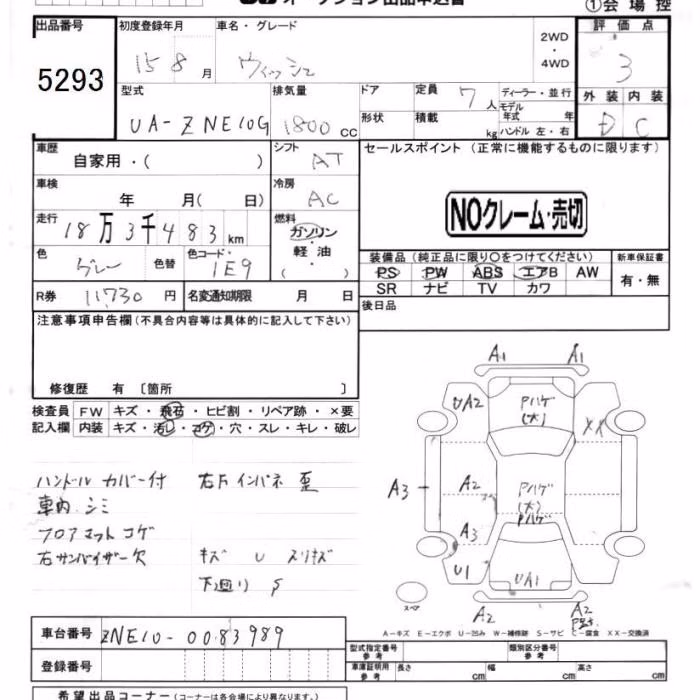 オークション出品申込書
①会場控
出品番号
5293
初度登録年月
15 8 月
車名・グレード
ウィッシュ
2WD
・
4WD
評価点
3
型式
UA-ZNE10G
排気量
1800 CC
ドア
形状
定員 7 人
積載 kg
ディーラー・並行
モデル年式 年
ハンドル 左・右
外装 内装
D C
車歴
自家用・( )
シフト
AT
セールスポイント (正常に機能するものに限ります)
車検
年 月( 日)
冷房
AC
NOクレーム・売切
走行
18万3千483km
燃料
ガソリン
・
軽油
( )
色
グレー
色替
色コード・
1E9
装備品 (純正品に限り〇をつけてください)
PS PW ABS エアB AW
SR ナビ TV カワ
新車保証書
有・無
R券 11,730 円
名変通知期限 月 日
後日品
注意事項申告欄(不具合内容等は具体的に記入して下さい)
修復歴 有 〔箇所 〕
検査員 FW キズ・飛石・ヒビ割・リペア跡・×要
記入欄 内装 キズ・汚れ・コゲ・穴・スレ・キレ・破レ
ハンドルカバー付 右Fインパネ歪
車内シミ
フロアマットコゲ
右サンバイザー欠 キズ U スリキズ
下廻り S
A1 A1
UA2 Pハゲ (大) XX
A3 A2 Pハゲ (大)
Pハゲ
A3
U1 UA1
スペア
A2 A2
A-キズ E-エクボ U-凹み W-補修跡 S-サビ C-腐食 XX-交換済
車台番号 ZNE10-0083989
登録番号
型式指定番号 参考
類別区分番号 参考
車庫証明用 参考 長さ cm 幅 cm 高さ cm
希望出品コーナー (コーナーは各会場により異なります。)